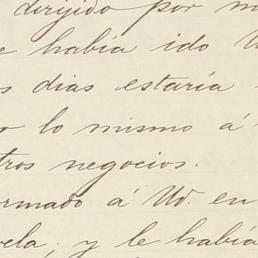 dirijido por m
e había ido U
s dias estaría
o lo mismo á
tros negocios.
ormado á Ud. en
ela; y le había